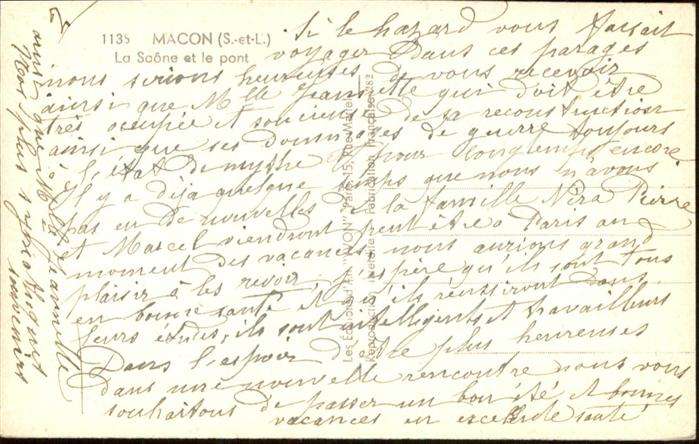 1138 MACON (S.-et-L.)
La Saône et le pont
Si le hazard vous faisait
voyager dans ces parages
nous serions heureuses de vous recevoir
ainsi que Mlle Jeannette qui doit être
très occupée et soucieuse de sa reconstruction
ainsi que ses dommages de guerre toujours
à l'état de mythe et pour longtemps encore
Il y a déjà quelque temps que nous n'avons
pas eu de nouvelles de la famille Nira Pierre
et Marcel viendront peut être à Paris au
moment des vacances, nous aurions grand
plaisir à les revoir. J'espère qu'ils sont tous
en bonne santé et qu'ils réussiront dans
leurs études, ils sont intelligents et travailleurs
Dans l'espoir d'être plus heureuses
dans une nouvelle rencontre nous vous
souhaitons de passer un bon été et bonnes
vacances en excellente santé
ainsi que Mlle Jeannette